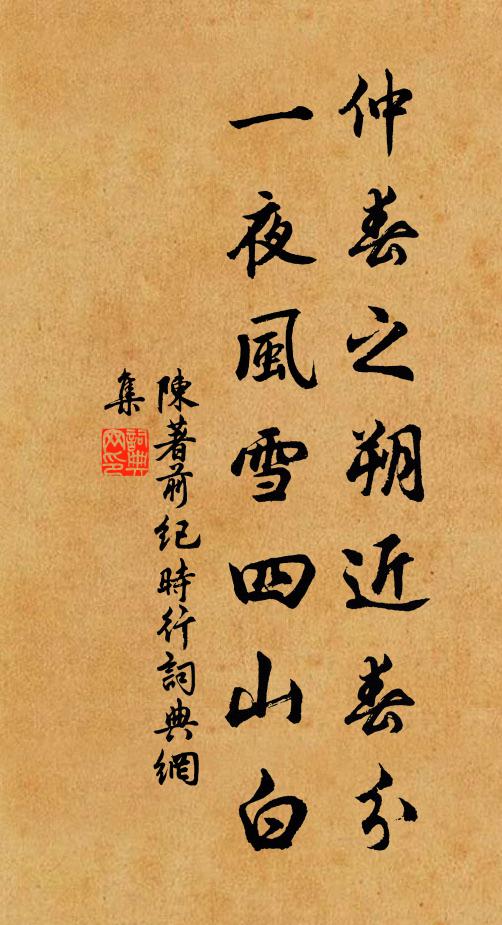 仲春之朔近春分
一夜風雪四山白
陳著前纪時行詞典網
集
詞典
网印